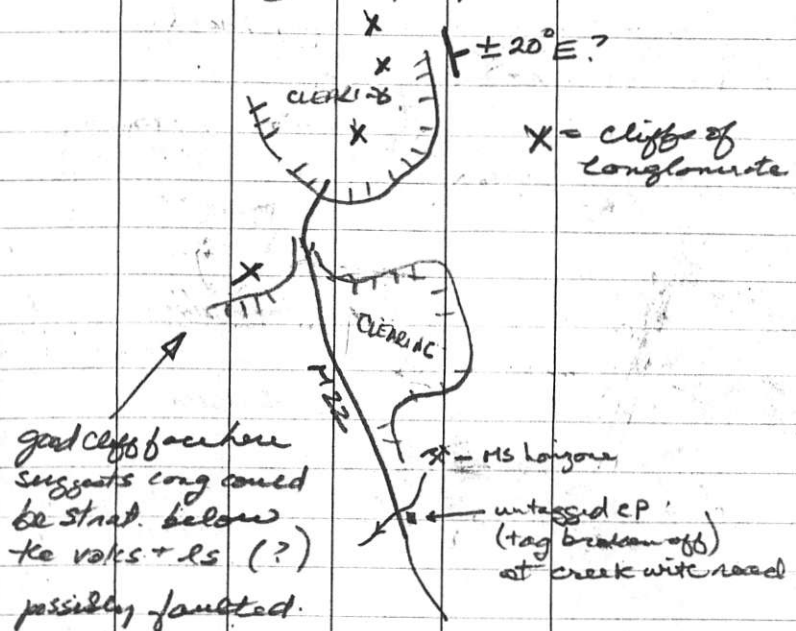 ± 20° E?
CLEARING
X = cliffs of
conglomerate
CLEARING
M22
good cliff face here
suggests cong could
be strat. below
the volcs + ls (?)
possibly faulted.
MS horizon
untagged CP
(tag broken off)
at creek with road